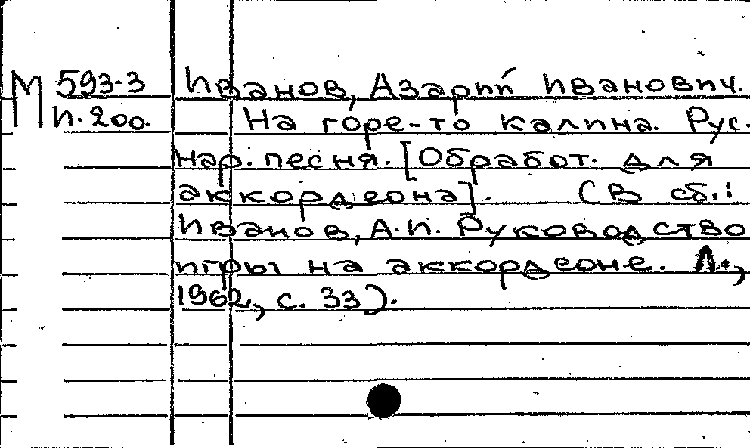 М 593-3 Иванов, Азарий Иванович.
И.200. На горе-то калина. Рус.
нар. песня. [Обработ. для
аккордеона]. (В сб.:
Иванов, А.И. Руководство
игры на аккордеоне. Л.,
1962, с. 33).